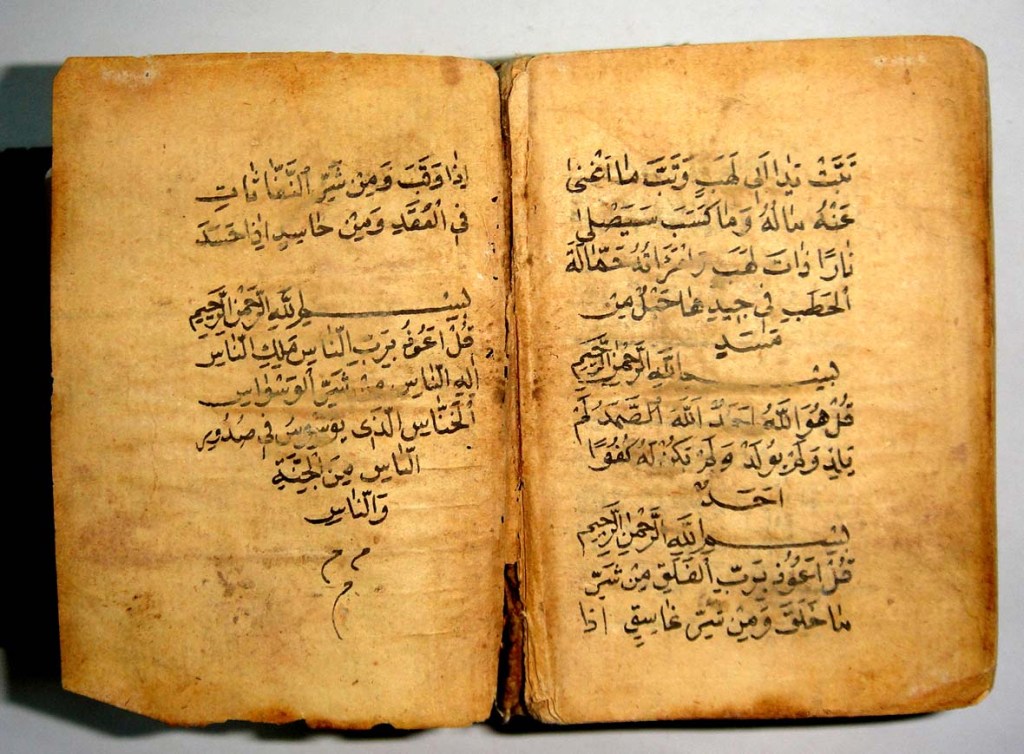 تَبَّتْ يَدٰا اَبى لَهَبٍ وَتَبَّ مٰا اَغْنىٰ
عَنْهُ مٰالُهُ وَمٰا كَسَبَ سَيَصْلىٰ
نٰارًا ذٰاتَ لَهَبٍ وَامْرَاَتُهُ حَمّٰالَةَ
الْحَطَبِ فى جيدِهٰا حَبْلٌ مِنْ
مَسَدٍ
بِسْمِ اللّٰهِ الرَّحْمٰنِ الرَّحيمِ
قُلْ هُوَ اللّٰهُ اَحَدٌ اَللّٰهُ الصَّمَدُ لَمْ
يَلِدْ وَلَمْ يُولَدْ وَلَمْ يَكُنْ لَهُ كُفُوًا
اَحَدٌ
بِسْمِ اللّٰهِ الرَّحْمٰنِ الرَّحيمِ
قُلْ اَعُوذُ بِرَبِّ الْفَلَقِ مِنْ شَرِّ
مٰا خَلَقَ وَمِنْ شَرِّ غٰاسِقٍ اِذٰا
اِذٰا وَقَبَ وَمِنْ شَرِّ النَّفّٰاثٰاتِ
فِى الْعُقَدِ وَمِنْ حٰاسِدٍ اِذٰا حَسَدَ
بِسْمِ اللّٰهِ الرَّحْمٰنِ الرَّحيمِ
قُلْ اَعُوذُ بِرَبِّ النّٰاسِ مَلِكِ النّٰاسِ
اِلٰهِ النّٰاسِ مِنْ شَرِّ الْوَسْوٰاسِ
الْخَنّٰاسِ الَّذى يُوَسْوِسُ فى صُدُورِ
النّٰاسِ مِنَ الْجِنَّةِ
وَالنّٰاسِ
م م
م